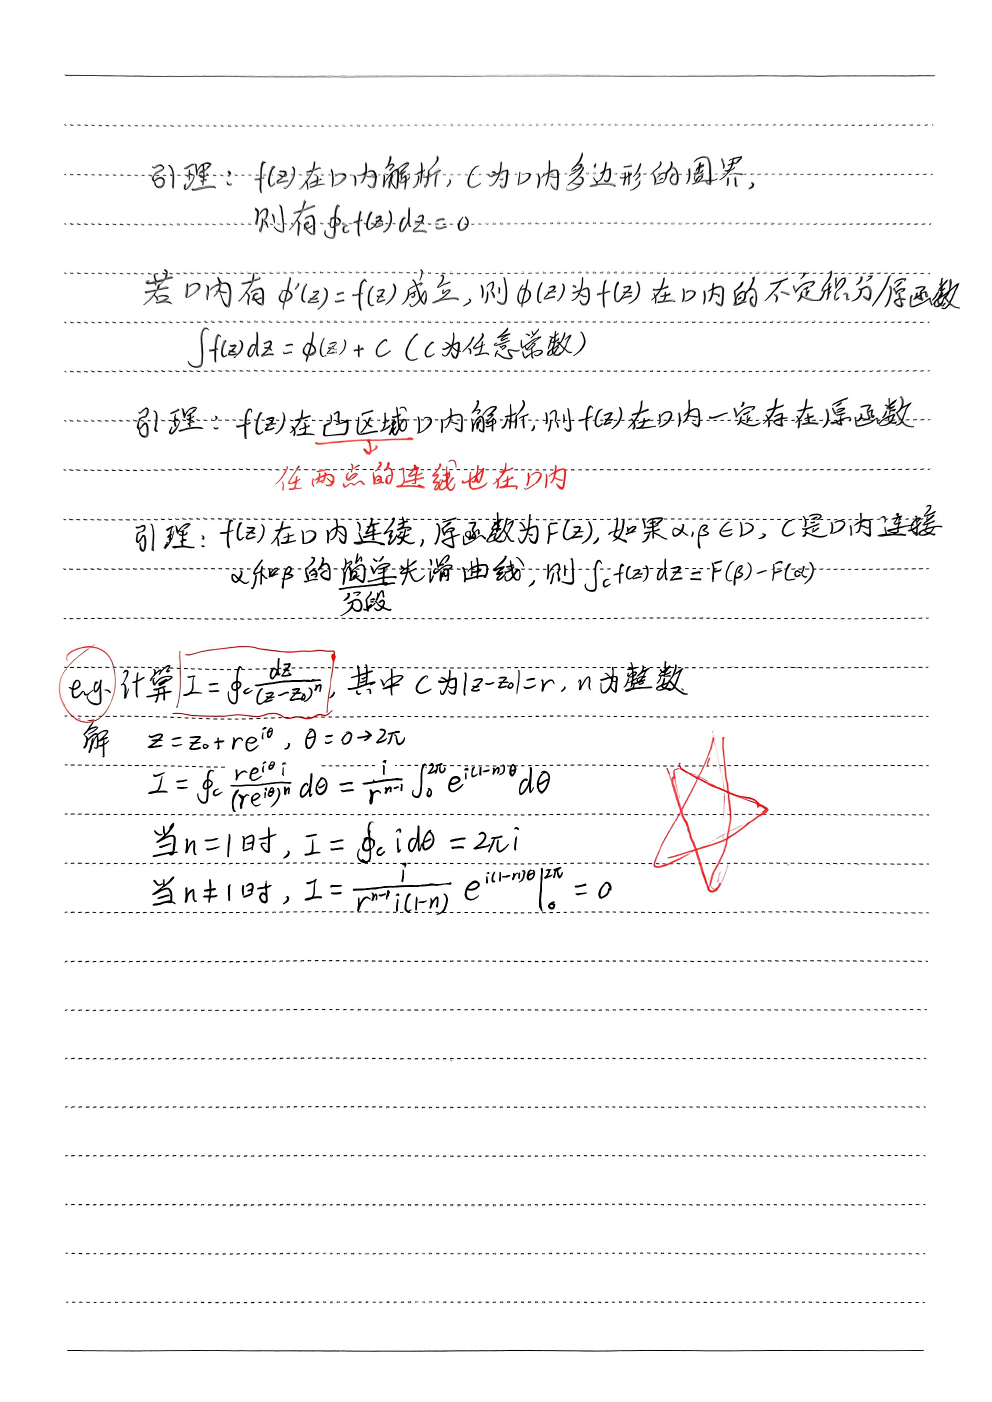 引理: f(z)在D内解析, C为D内多边形的周界,
则有∮_c f(z)dz=0
若D内有φ'(z)=f(z)成立, 则φ(z)为f(z)在D内的不定积分/原函数
∫f(z)dz=φ(z)+C (C为任意常数)
引理: f(z)在凸区域D内解析, 则f(z)在D内一定存在原函数
任两点的连线也在D内
引理: f(z)在D内连续, 原函数为F(z), 如果α,β∈D, C是D内连接
α和β的简单光滑曲线, 则∫_c f(z)dz=F(β)-F(α)
分段
e.g. 计算 I=∮_c dz/(z-z₀)^n, 其中C为|z-z₀|=r, n为整数
解 z=z₀+re^{iθ}, θ=0→2π
I=∮_c re^{iθ}i/(re^{iθ})^n dθ = i/r^{n-1} ∫_0^{2π} e^{i(1-n)θ}dθ
当n=1时, I=∮_c idθ=2πi
当n≠1时, I= i/(r^{n-1}i(1-n)) e^{i(1-n)θ}|_0^{2π} =0